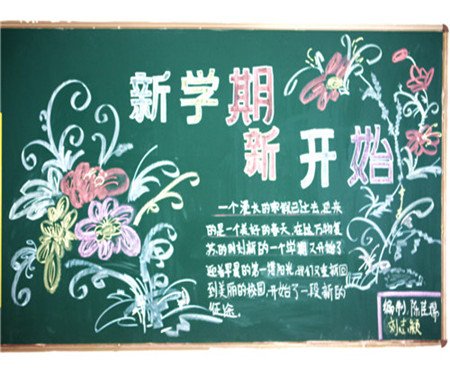 新学期
新开始
一个漫长的寒假已过去,迎来
的是一个美好的春天,在这万物复
苏的时刻新的一个学期又开始了
迎着早晨的第一缕阳光,我们又重新回
到美丽的校园,开始了一段新的
征途。